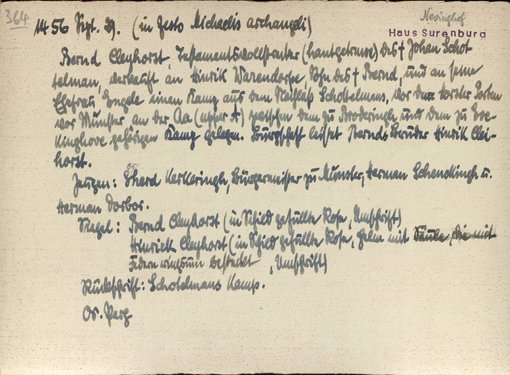 364
Nevinghof
Haus Surenburg
1456 Sept. 29. (in festo Michaelis archangeli)
Bernd Cleyhorst, Testamentsvollstrecker (hantgetruwe) des † Johan Schot
telman, verkauft an Hinrik Warendorpe, Sohn des † Bernd, und an seine
Ehefrau Engele einen Kamp aus dem Nachlaß Schotelmans, vor der Horster Porten
vor Münster an der Aa (upper A) zwischen dem zu Broderingh und dem zu
Kinghove gehörigen Kamp gelegen. Bürgschaft leistet Bernds Bruder Hinrik Cley-
horst.
Zeugen: Everd Kerkeringh, Bürgermeister zu Münster, Herman Schenckingh u.
Herman Dorbor.
Siegel: Bernd Cleyhorst (im Schild gefüllte Rose, Umschrift)
Hinrick Cleyhorst (im Schild gefüllte Rose, Helm mit Säule, die mit
Federn ringsum besteckt, Umschrift)
Rückschrift: Schotelmans Kamp.
Or. Perg